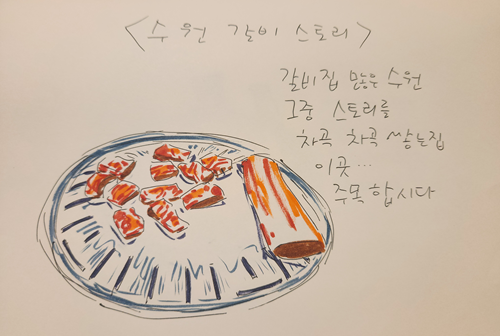 <수원 갈비 스토리>
갈비집 많은 수원
그중 스토리를
차곡 차곡 쌓는집
이곳...
주목합시다